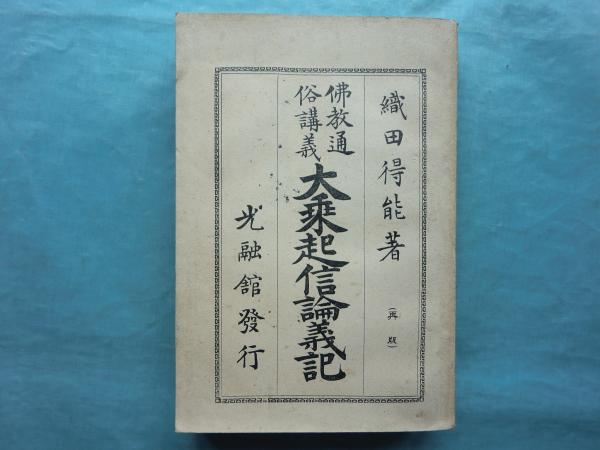 織田得能著
(再版)
佛教通
俗講義
大乗起信論義記
光融館發行